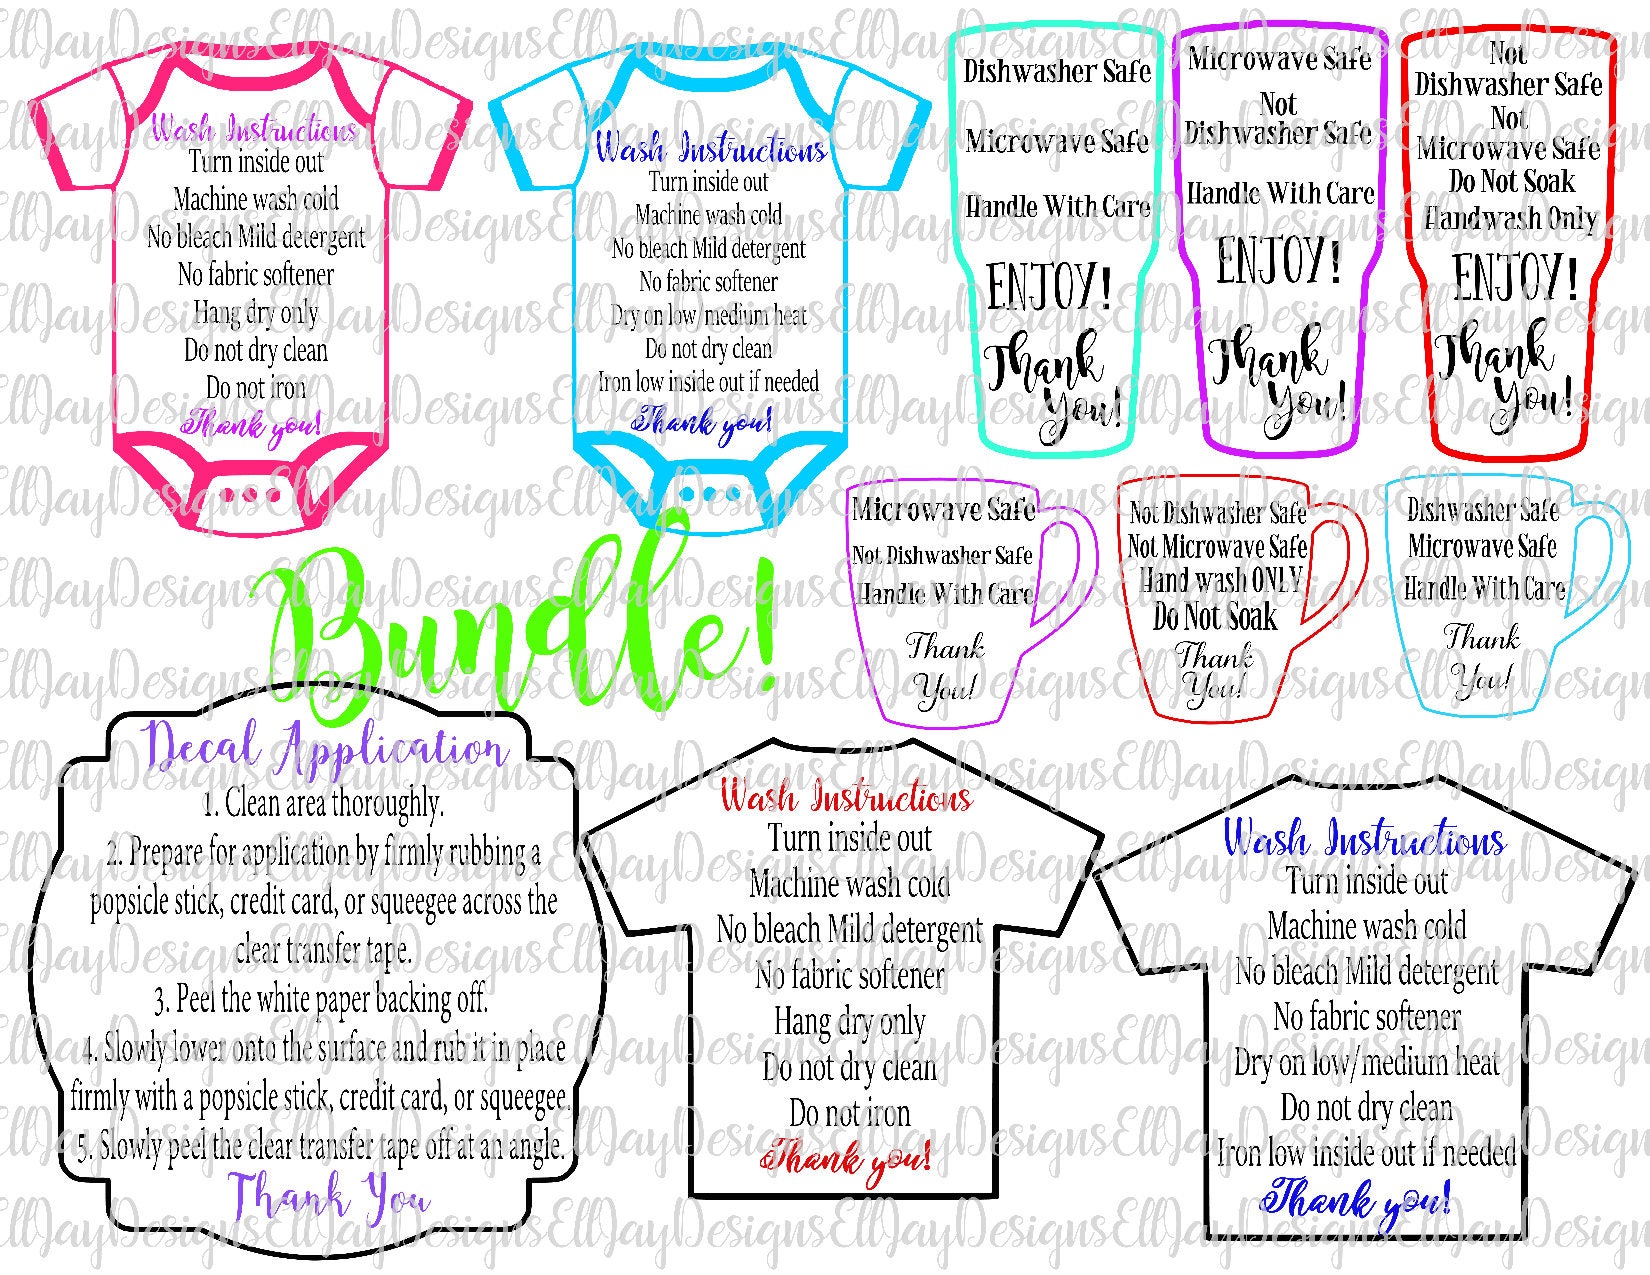 Wash Instructions
Turn inside out
Machine wash cold
No bleach Mild detergent
No fabric softener
Hang dry only
Do not dry clean
Do not iron
Thank you!
Wash Instructions
Turn inside out
Machine wash cold
No bleach Mild detergent
No fabric softener
Dry on low/medium heat
Do not dry clean
Iron low inside out if needed
Thank you!
Dishwasher Safe
Microwave Safe
Handle With Care
ENJOY!
Thank
You!
Microwave Safe
Not
Dishwasher Safe
Handle With Care
ENJOY!
Thank
You!
Not
Dishwasher Safe
Not
Microwave Safe
Do Not Soak
Handwash Only
ENJOY!
Thank
You!
Bundle!
Microwave Safe
Not Dishwasher Safe
Handle With Care
Thank
You!
Not Dishwasher Safe
Not Microwave Safe
Hand wash ONLY
Do Not Soak
Thank
You!
Dishwasher Safe
Microwave Safe
Handle With Care
Thank
You!
Decal Application
1. Clean area thoroughly.
2. Prepare for application by firmly rubbing a
popsicle stick, credit card, or squeegee across the
clear transfer tape.
3. Peel the white paper backing off.
4. Slowly lower onto the surface and rub it in place
firmly with a popsicle stick, credit card, or squeegee.
5. Slowly peel the clear transfer tape off at an angle.
Thank You
Wash Instructions
Turn inside out
Machine wash cold
No bleach Mild detergent
No fabric softener
Hang dry only
Do not dry clean
Do not iron
Thank you!
Wash Instructions
Turn inside out
Machine wash cold
No bleach Mild detergent
No fabric softener
Dry on low/medium heat
Do not dry clean
Iron low inside out if needed
Thank you!
EllJayDesigns